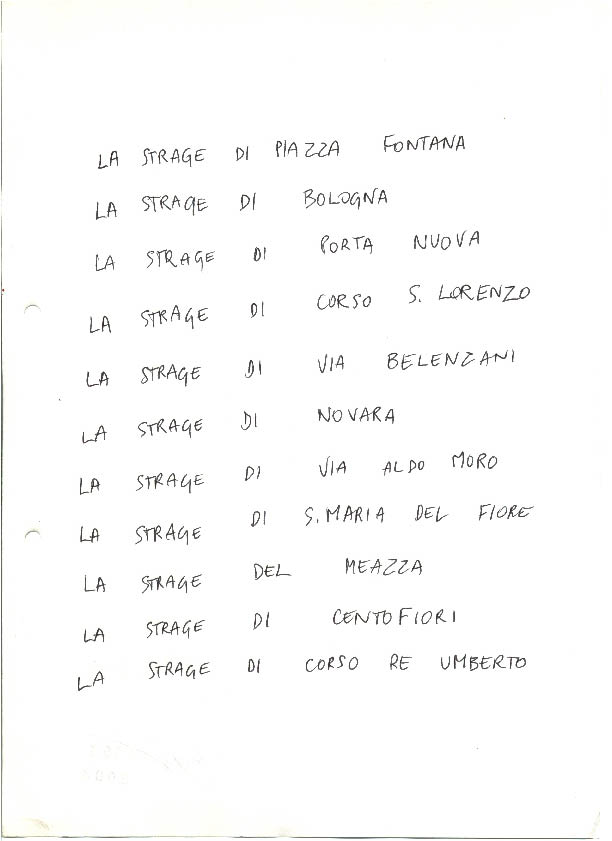 LA STRAGE DI PIAZZA FONTANA
LA STRAGE DI BOLOGNA
LA STRAGE DI PORTA NUOVA
LA STRAGE DI CORSO S. LORENZO
LA STRAGE DI VIA BELENZANI
LA STRAGE DI NOVARA
LA STRAGE DI VIA ALDO MORO
LA STRAGE DI S. MARIA DEL FIORE
LA STRAGE DEL MEAZZA
LA STRAGE DI CENTOFIORI
LA STRAGE DI CORSO RE UMBERTO